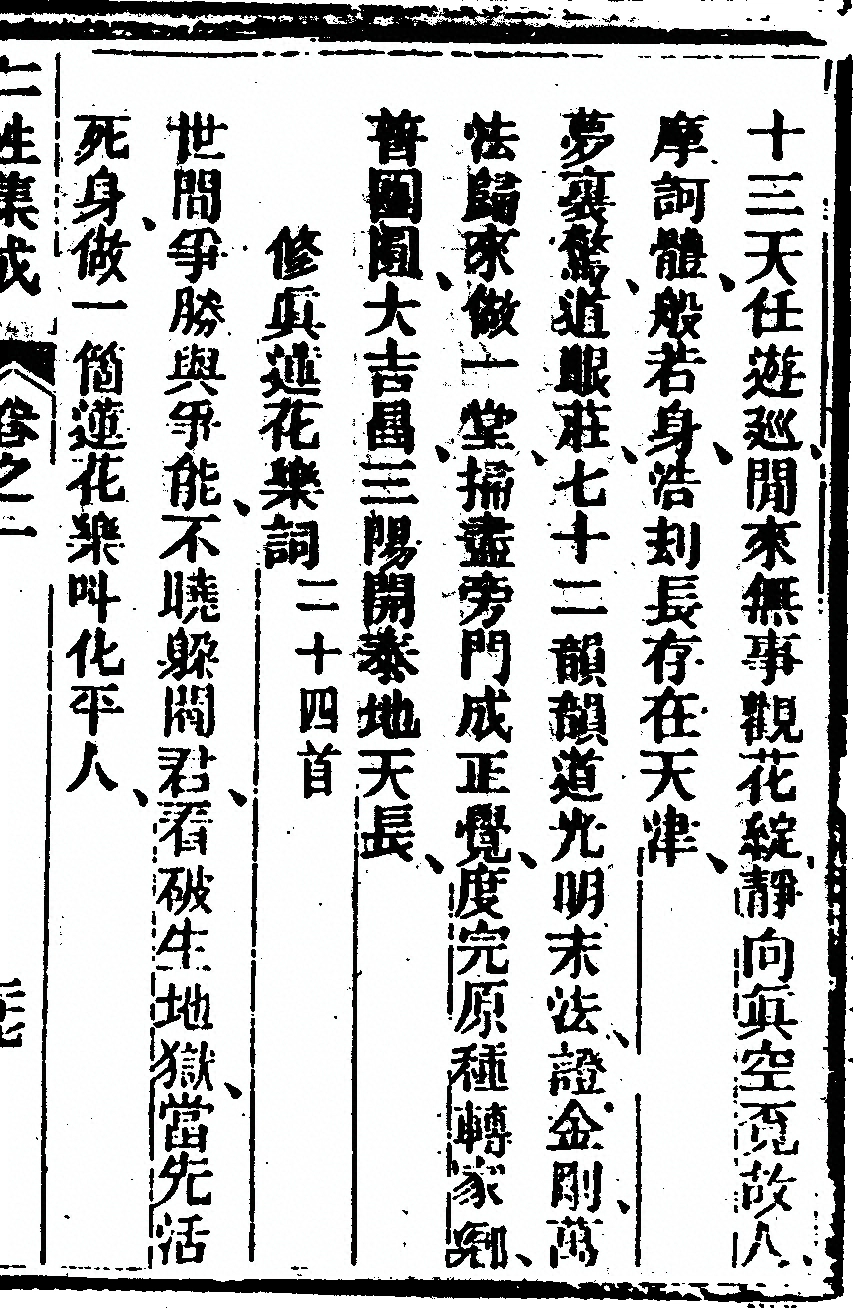 十三天任遊廵閒來無事觀花綻靜向眞空覓故人
摩訶體般若身浩刼長存在天津
夢裏驚道眼莊七十二韻韻道光明末法證金剛萬
法歸來做一堂掃盡旁門成正覺度完原種轉家鄉
普團圓大吉昌三陽開泰地天長
修眞蓮花樂詞二十四首
世間爭勝與爭能不曉躲閻君看破生地獄當先活
死身做一箇蓮花樂叫化平人
性集成 卷之二